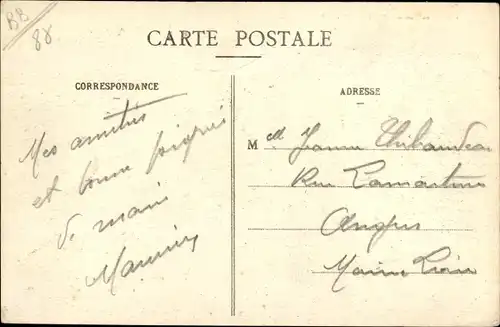 BB
88
CARTE POSTALE
CORRESPONDANCE
Mes amitiés
et bonne poignée
de main
Maurice
ADRESSE
Melle Jeanne Thibaudeau
Rue Lamartine
Angers
Maine Loire